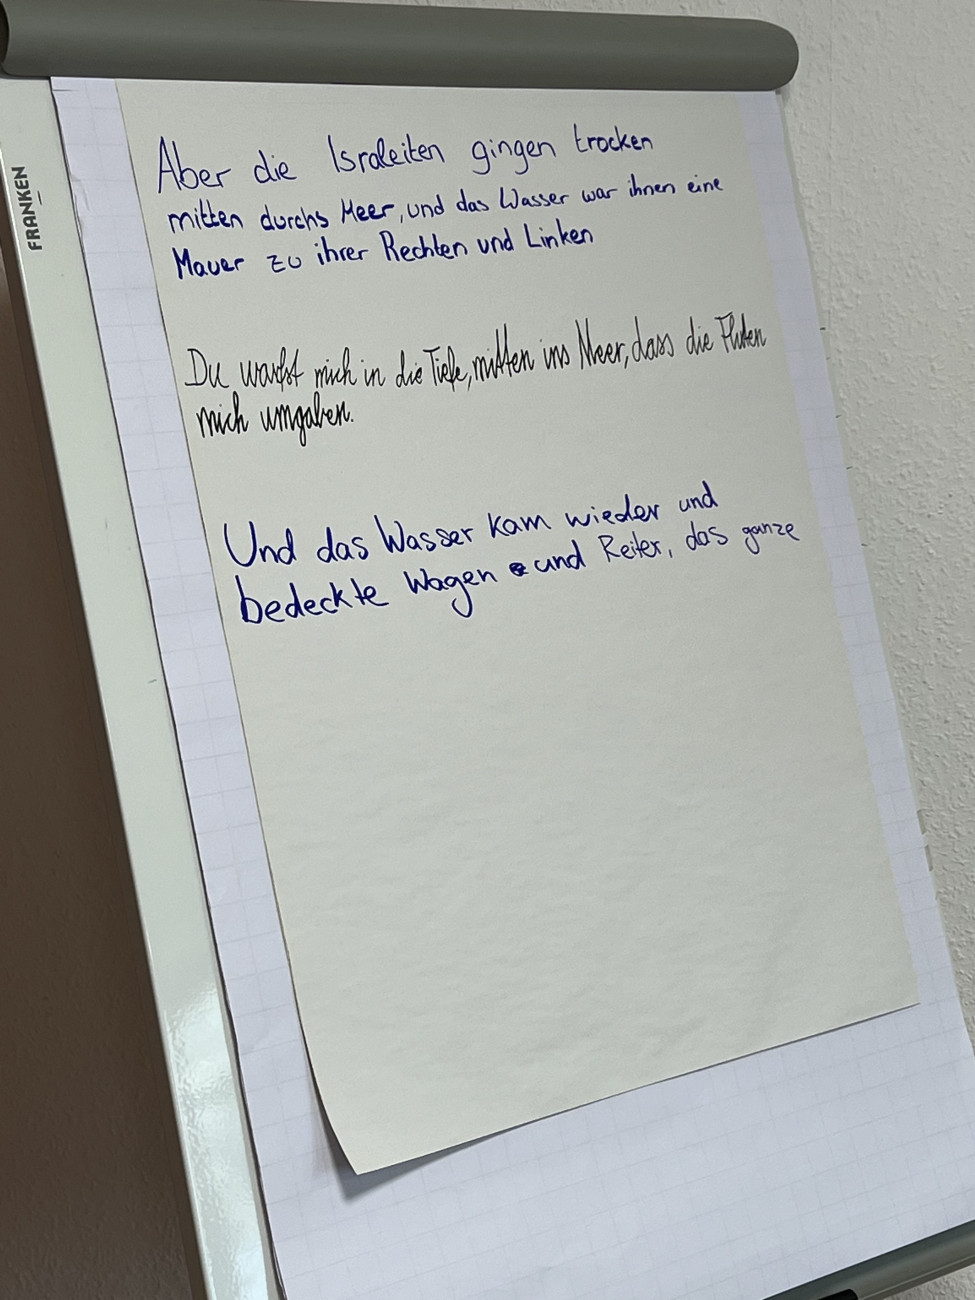 FRANKEN
Aber die Israleiten gingen trocken
mitten durchs Meer, und das Wasser war ihnen eine
Mauer zu ihrer Rechten und Linken
Du warfst mich in die Tiefe, mitten ins Meer, dass die Fluten
mich umgaben.
Und das Wasser kam wieder und
bedeckte Wagen und Reiter, das ganze